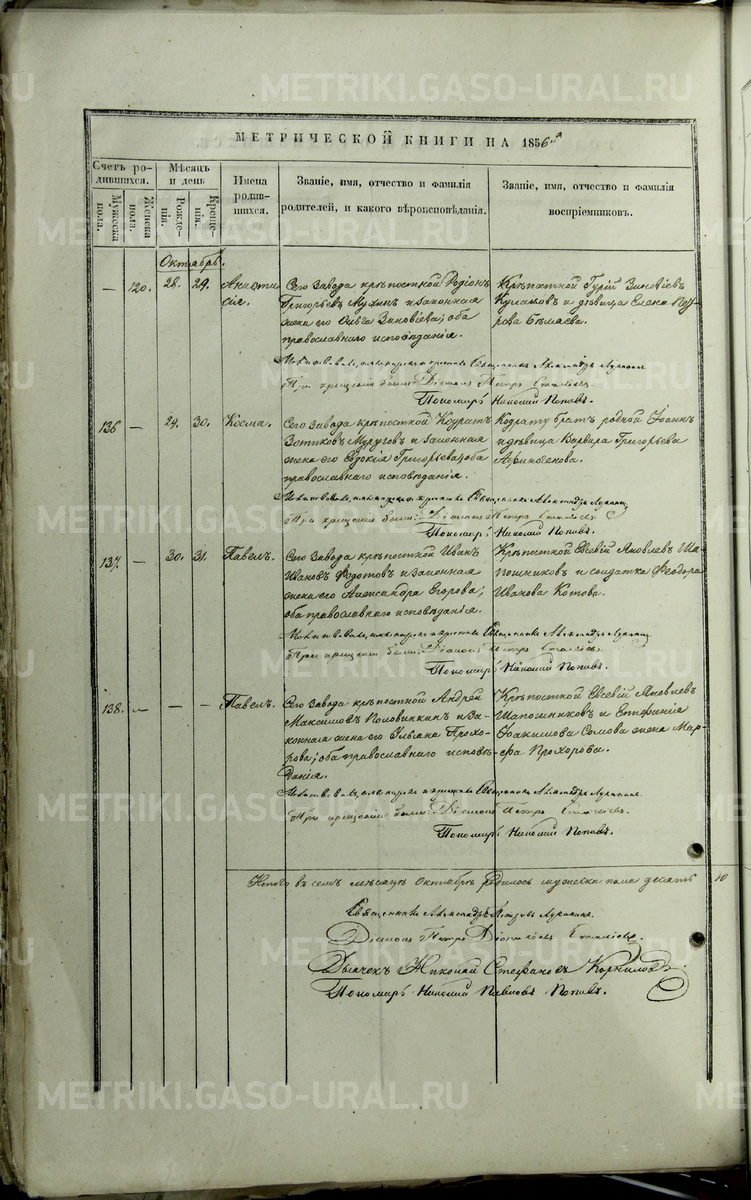 METRIKI.GASO-URAL.RU
МЕТРИЧЕСКОЙ КНИГИ НА 1856
Счетъ родившихся.
Мужеска пола.
Женска пола.
Мѣсяцъ и день
Рожденія.
Крещенія.
Имена родившихся.
Званіе, имя, отчество и фамилія родителей, и какого вѣроисповѣданія.
Званіе, имя, отчество и фамилія воспріемниковъ.
Октябрь.
— 120. 28. 29. Анастасія.
Сего Завода крѣпостной Родіонъ
Григорьевъ Мухинъ и законная
жена его Ольга Зиновіева; оба
православнаго исповѣданія.
Крѣпостной Гурій Зиновіевъ
и дѣвица Елена
Бѣляева.
Священникъ Александръ
При крещеніи былъ: Діаконъ Петръ
Пономарь Николай Поповъ.
136 — 29. 30. Косма.
Сего Завода крѣпостной Кодратъ
Зотиковъ и законная
жена его Евдокія Григорьева; оба
православнаго исповѣданія.
Кодрату братъ родной Іоаннъ
и дѣвица Варвара Григорьева
Священникъ Александръ
При крещеніи былъ: Діаконъ Петръ
Пономарь Николай Поповъ.
137. — 30. 31. Павелъ.
Сего Завода крѣпостной Иванъ
Ивановъ Федотовъ и законная
жена его Александра Егорова;
оба православнаго исповѣданія.
Крѣпостной Евсевій Яковлевъ Шапошниковъ
и солдатка Феодора
Иванова Котова.
Священникъ Александръ
При крещеніи былъ: Діаконъ Петръ
Пономарь Николай Поповъ.
138. — — — Павелъ.
Сего Завода крѣпостной Андрей
Максимовъ Половинкинъ и законная
жена его Ульяна Прохорова;
оба православнаго исповѣданія.
Крѣпостной Евсевій Яковлевъ
Шапошниковъ и
Іоакимова Сомова жена Марфа
Прохорова.
Священникъ Александръ
При крещеніи былъ: Діаконъ Петръ
Пономарь Николай Поповъ.
Итого въ семъ мѣсяцѣ Октябрѣ родилось мужеска пола десять 10
Священникъ Александръ Петровъ
Діаконъ Петръ
Дьячекъ Николай Стефановъ Корниловъ
Пономарь Николай Павловъ Поповъ.